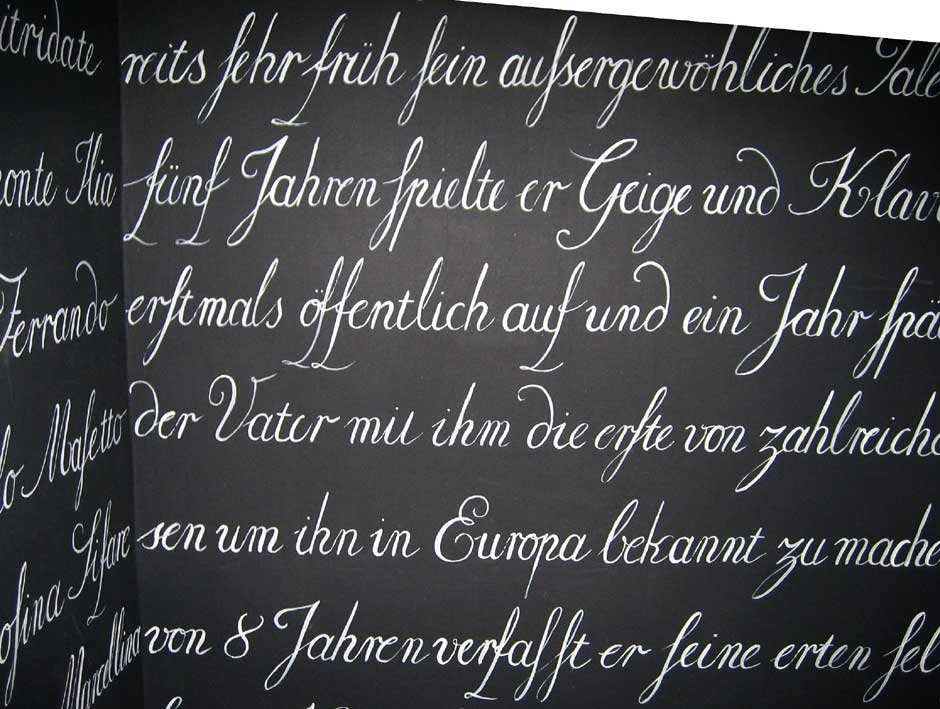 itridate
onte Ilia
Ferrando
o Masetto
Sifare
osina
Marcellina
reits sehr früh sein aufsergewöhliches Tale
fünf Jahren spielte er Geige und Klav
erstmals öffentlich auf und ein Jahr spä
der Vater mit ihm die erste von zahlreiche
sen um ihn in Europa bekannt zu mache
von 8 Jahren verfasst er seine erten sel